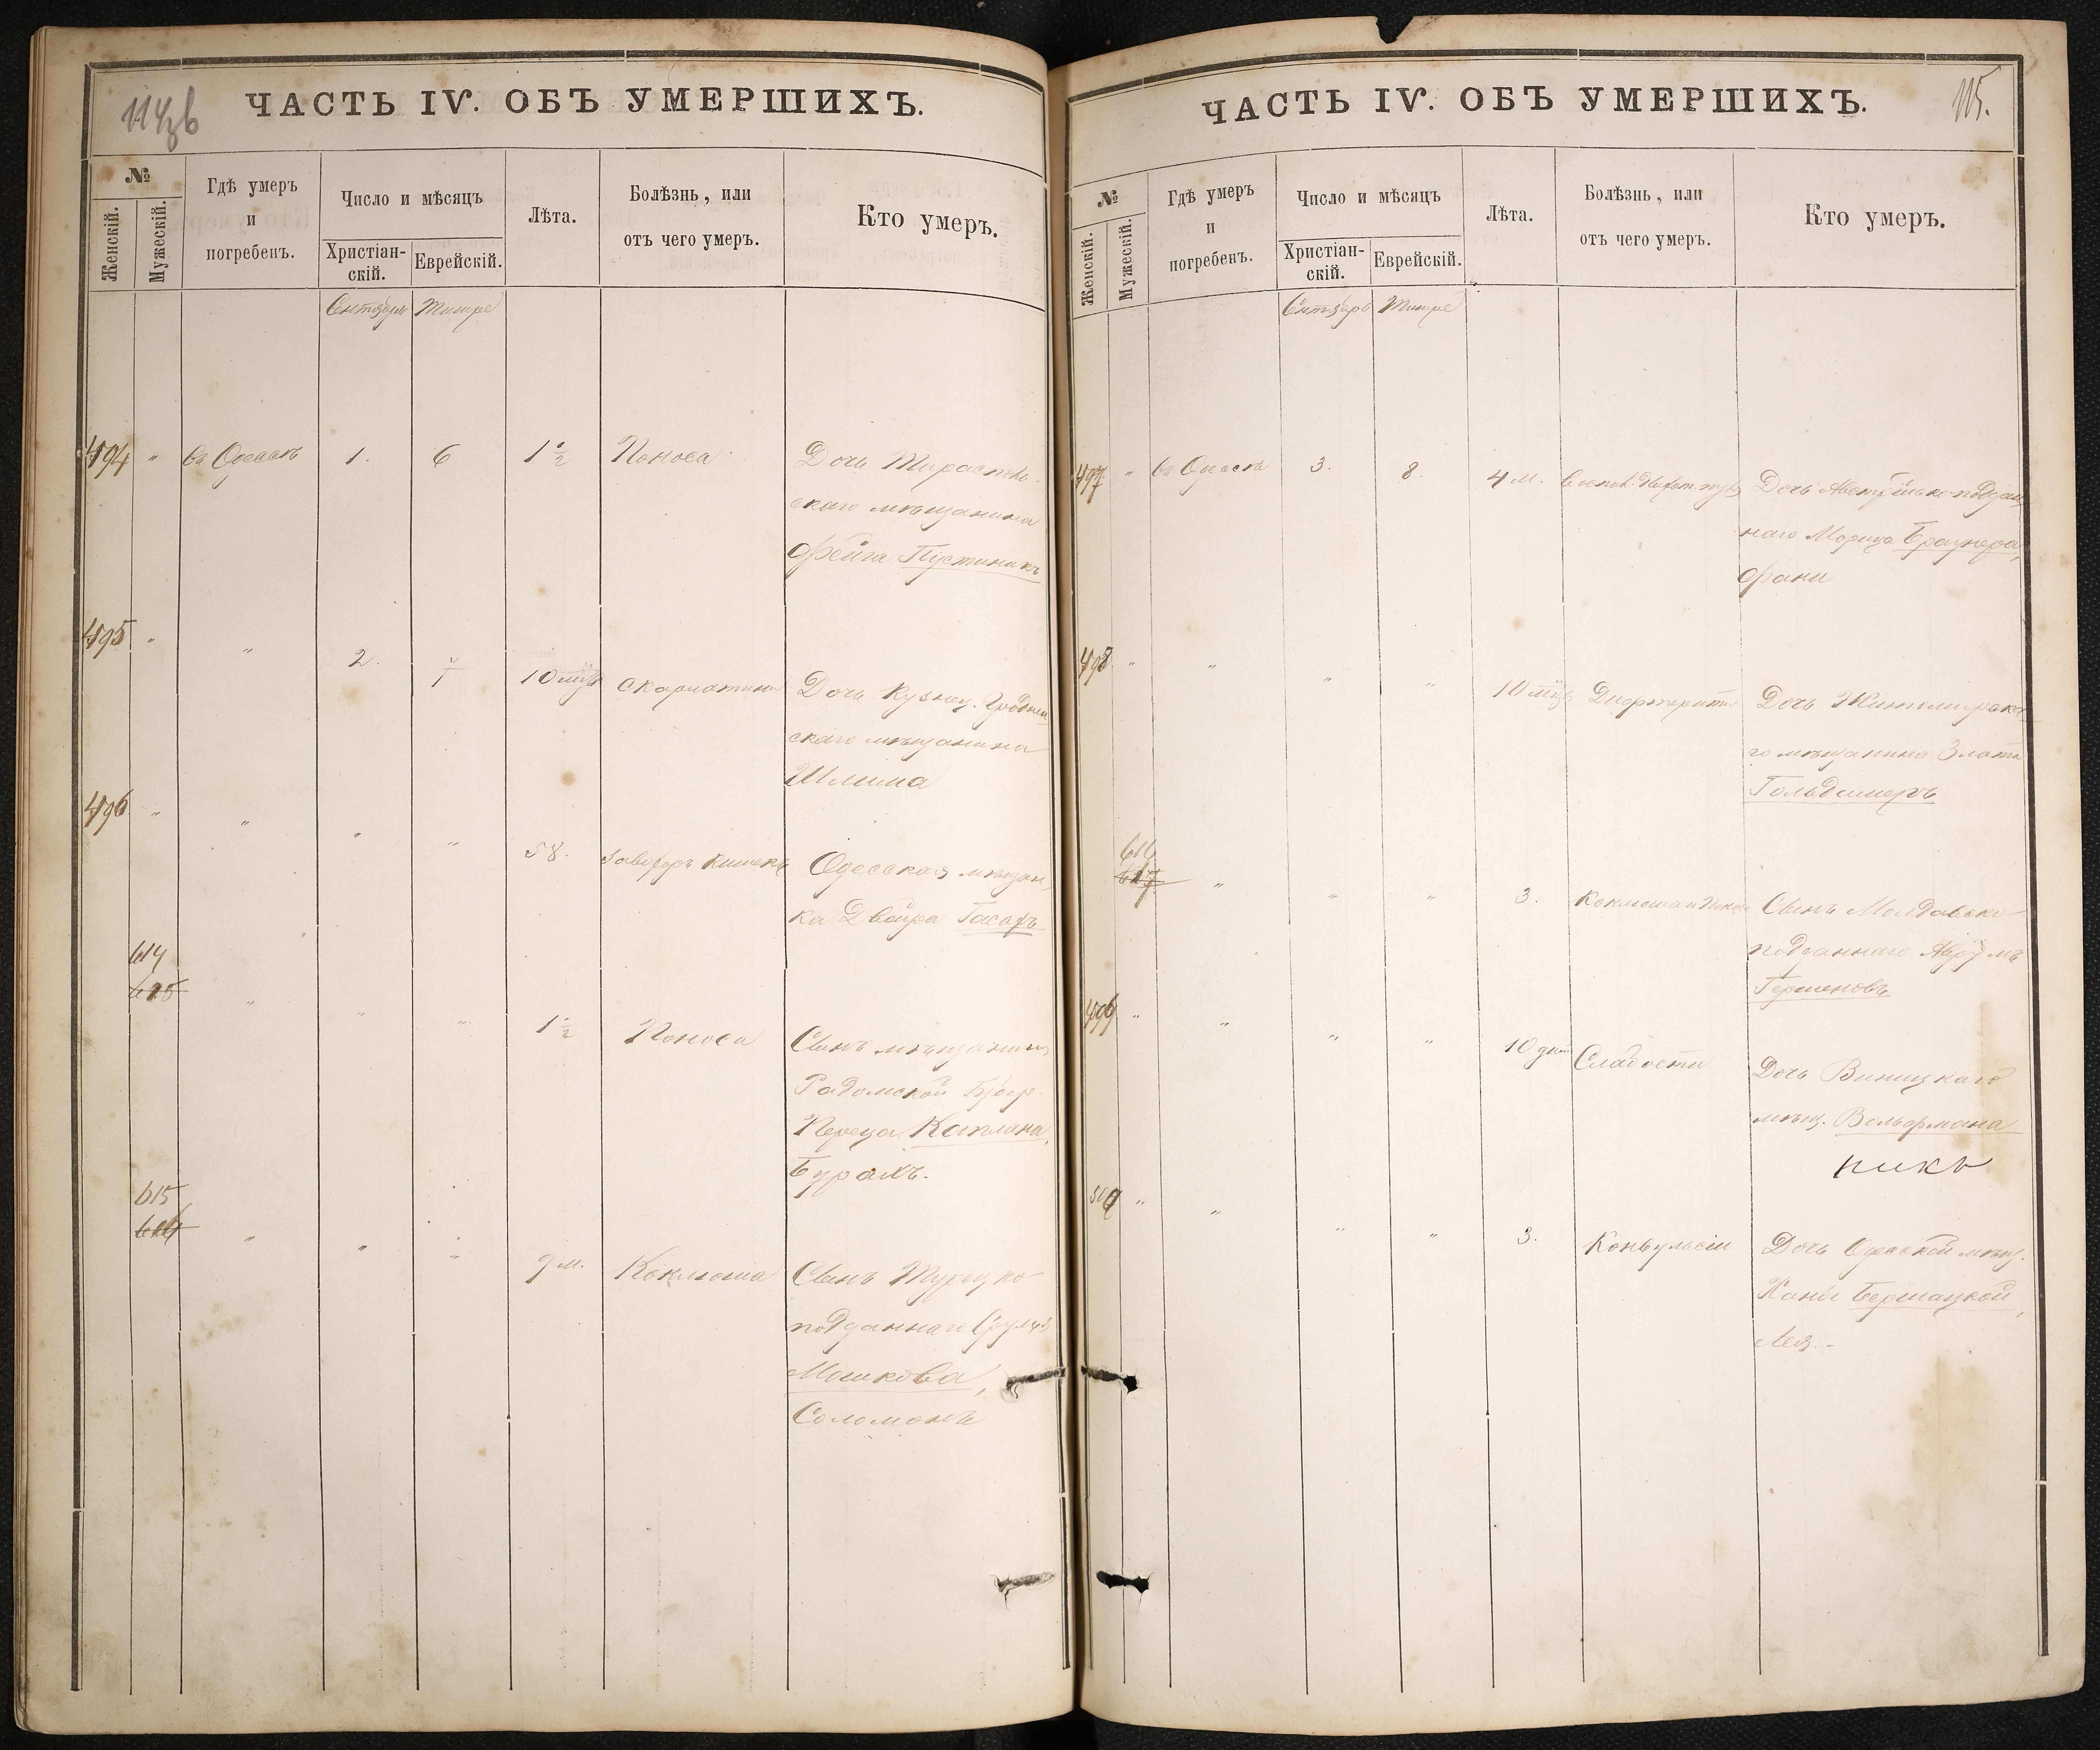 114 зв
ЧАСТЬ IV. ОБЪ УМЕРШИХЪ.
№
Женскій.
Мужескій.
Гдѣ умеръ
и
погребенъ.
Число и мѣсяцъ
Христіан-
скій.
Еврейскій.
Лѣта.
Болѣзнь, или
отъ чего умеръ.
Кто умеръ.
Сентябрь Тишре
494 " въ Одессѣ 1. 6 1 1/2 Поноса Дочь Тирасполь-
скаго мѣщанина
Фейга Пустиникъ
495 " " 2. 7 10 мцъ Скарлатины Дочь Кузнец. Гроднен
скаго мѣщанина
Шлима
496 " " " " 58. Заворотъ кишекъ Одесская мѣщан
ка Двойра Гасаръ
614
615 " " " 1 1/2 Поноса Сынъ мѣщанина
Радомской Губер.
Переца Каплана,
Бурахъ.
615
616 " " " 9 м. Коклюша Сынъ Турецко-
подданнаго Сруля
Мошкова,
Соломонъ
115.
ЧАСТЬ IV. ОБЪ УМЕРШИХЪ.
№
Женскій.
Мужескій.
Гдѣ умеръ
и
погребенъ.
Число и мѣсяцъ
Христіан-
скій.
Еврейскій.
Лѣта.
Болѣзнь, или
отъ чего умеръ.
Кто умеръ.
Сентябрь Тишре
497 " въ Одессѣ 3. 8. 4 м. Дочь Австрійско-поддан
наго Морица Браунера,
Фани
498 " " " " 10 мцъ Дифтерита Дочь Житомирска
го мѣщанина Злата
Гольдимеръ
616
617 " " " 3. Коклюша и Поноса Сынъ Молдавско-
подданнаго Аврумъ
Гершеновъ
499 " " " " 10 дней Слабости Дочь Виницкаго
мѣщ. Вольфмана
пикъ
500 " " " " 3. Конвульсіи Дочь Одесской мѣщ.
Ханы Бершацкой,
Лея.-